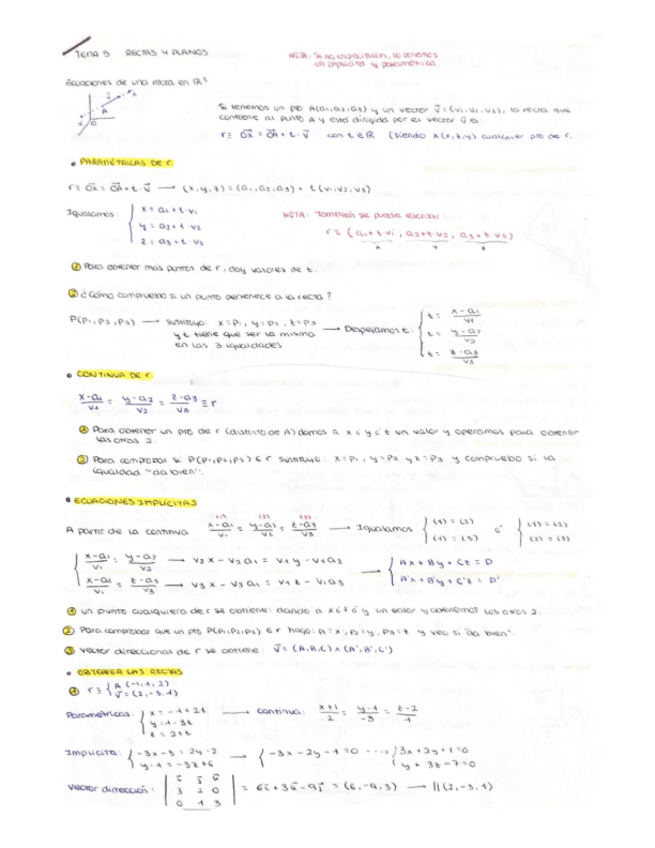 TEMA 5 RECTAS Y PLANOS
NOTA: Si no especifican, lo ponemos
en implícita y paramétrica.
Ecuaciones de una recta en ℝ³
Si tenemos un pto A(a₁,a₂,a₃) y un vector v⃗=(v₁,v₂,v₃), la recta que
contiene al punto A y está dirigida por el vector v⃗ es:
r≡ OX⃗ = OA⃗ + t·v⃗ con t∈ℝ (siendo X(x,y,z) cualquier pto de r.
• PARAMÉTRICAS DE r.
r≡ OX⃗ = OA⃗ + t·v⃗ ⟶ (x,y,z) = (a₁,a₂,a₃) + t(v₁,v₂,v₃)
Igualamos: { x = a₁+t·v₁
y = a₂+t·v₂
z = a₃+t·v₃
NOTA: También se puede escribir:
r≡ (a₁+t·v₁, a₂+t·v₂, a₃+t·v₃)
x y z
① Para obtener más puntos de r, doy valores de t.
② ¿Cómo compruebo si un punto pertenece a la recta?
P(P₁,P₂,P₃) ⟶ sustituyo: x=P₁, y=P₂, z=P₃ ⟶ Despejamos t: { t = (x-a₁)/v₁
y t tiene que ser la misma t = (y-a₂)/v₂
en las 3 igualdades t = (z-a₃)/v₃
• CONTINUA DE r
(x-a₁)/v₁ = (y-a₂)/v₂ = (z-a₃)/v₃ ≡ r
① Para obtener un pto de r (distinto de A) damos a x ó y ó z un valor y operamos para obtener
las otras 2.
② Para comprobar si P(P₁,P₂,P₃) ∈ r sustituyo: x=P₁, y=P₂ y z=P₃ y compruebo si la
igualdad "da bien".
• ECUACIONES IMPLÍCITAS
(1) (2) (3)
A partir de la continua (x-a₁)/v₁ = (y-a₂)/v₂ = (z-a₃)/v₃ ⟶ Igualamos { (1)=(2) ó { (1)=(2)
(1)=(3) (2)=(3)
{ (x-a₁)/v₁ = (y-a₂)/v₂ ⟶ v₂x - v₂a₁ = v₁y - v₁a₂ ⟶ { Ax+By+Cz=D
(x-a₁)/v₁ = (z-a₃)/v₃ ⟶ v₃x - v₃a₁ = v₁z - v₁a₃ A'x+B'y+C'z=D'
① Un punto cualquiera de r se obtiene: dando a x ó z ó y un valor y obtenemos los otros 2.
② Para comprobar que un pto P(P₁,P₂,P₃) ∈ r hago: P₁=x, P₂=y, P₃=z y veo si "da bien".
③ Vector direccional de r se obtiene: v⃗ = (A,B,C)×(A',B',C')
• OBTENER LAS RECTAS
① r≡ { A(-1,1,2)
v⃗=(2,-3,1)
Paramétricas: { x=-1+2t ⟶ continua: (x+1)/2 = (y-1)/-3 = (z-2)/1
y=1-3t
z=2+t
Implícita: { -3x-3=2y-2 ⟶ { -3x-2y-1=0 ---> { 3x+2y+1=0
y-1=-3z+6 y+3z-7=0
Vector dirección: | i⃗ j⃗ k⃗ |
| 3 2 0 | = 6i⃗+3k⃗-9j⃗ = (6,-9,3) ⟶ ||(2,-3,1)
| 0 1 3 |